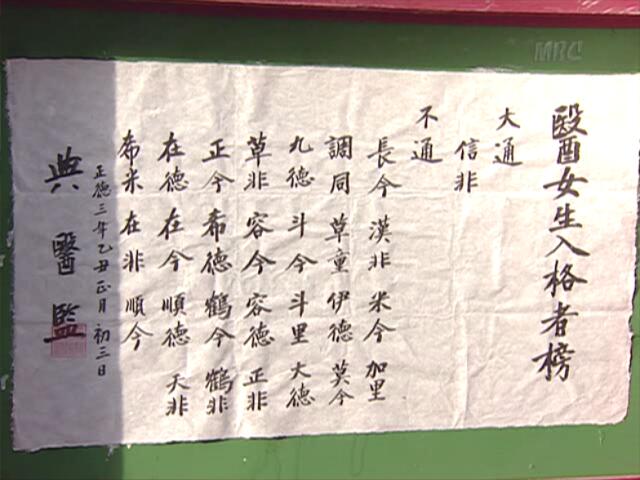 MBC
醫女生入格者榜
大通
信非
不通
長今 漢非 米今 加里
調同 草童 伊德 莫今
九德 斗今 斗里 大德
草非 容今 容德 正非
正今 希德 鶴今 鶴非
在德 在今 順德 天非
希米 在非 順今
正德三年乙丑正月初三日
典醫監